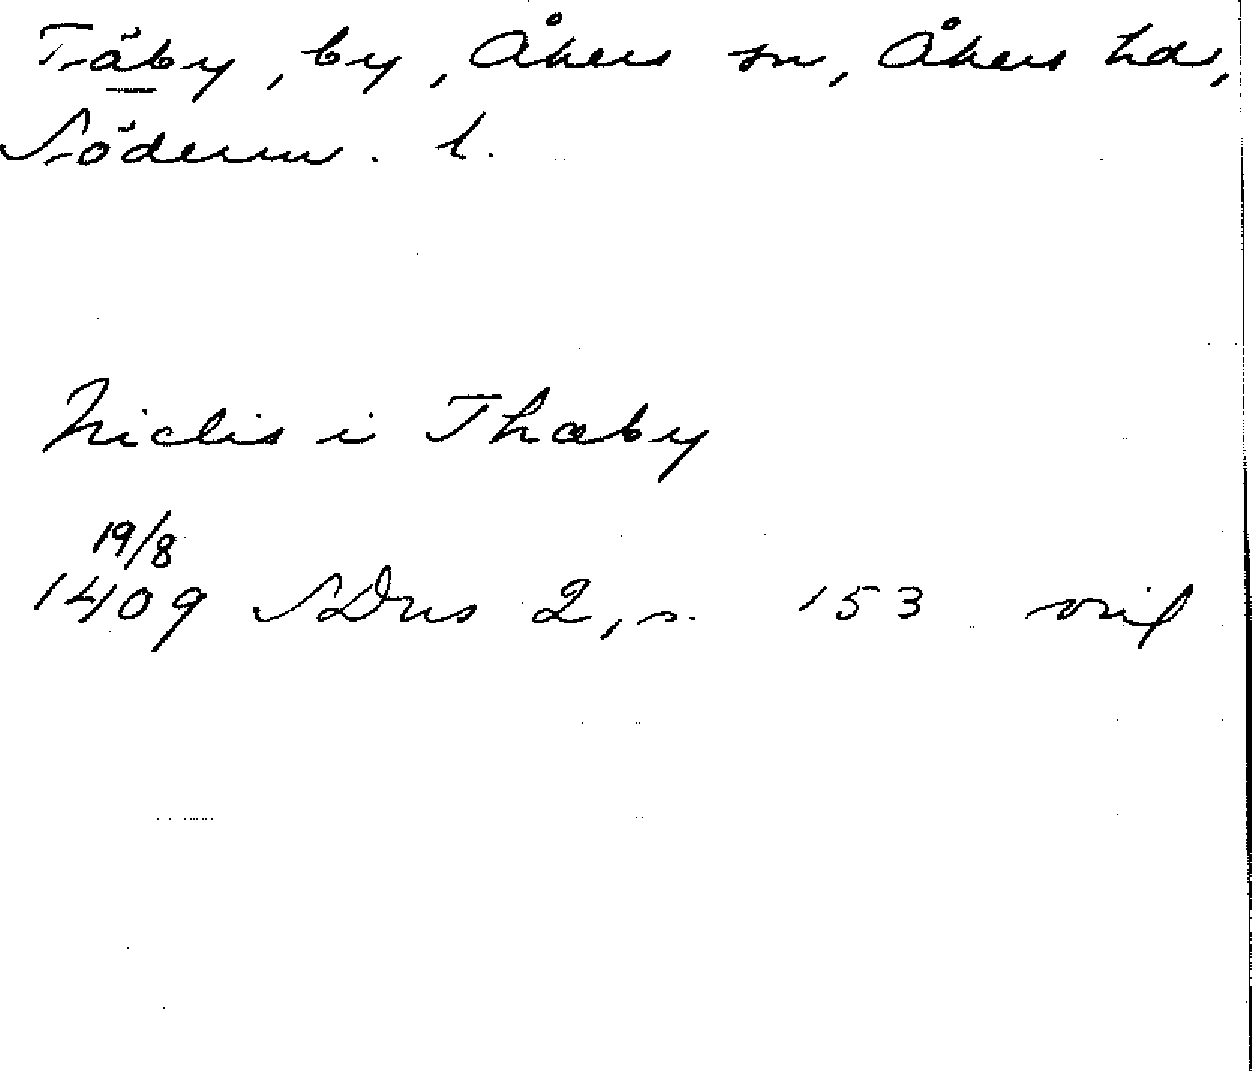 Täby, by, Åkers sn, Åkers hd,
Söderm. l.
Niclis i Thæby
19/8
1409 SDns 2, s. 153 orig